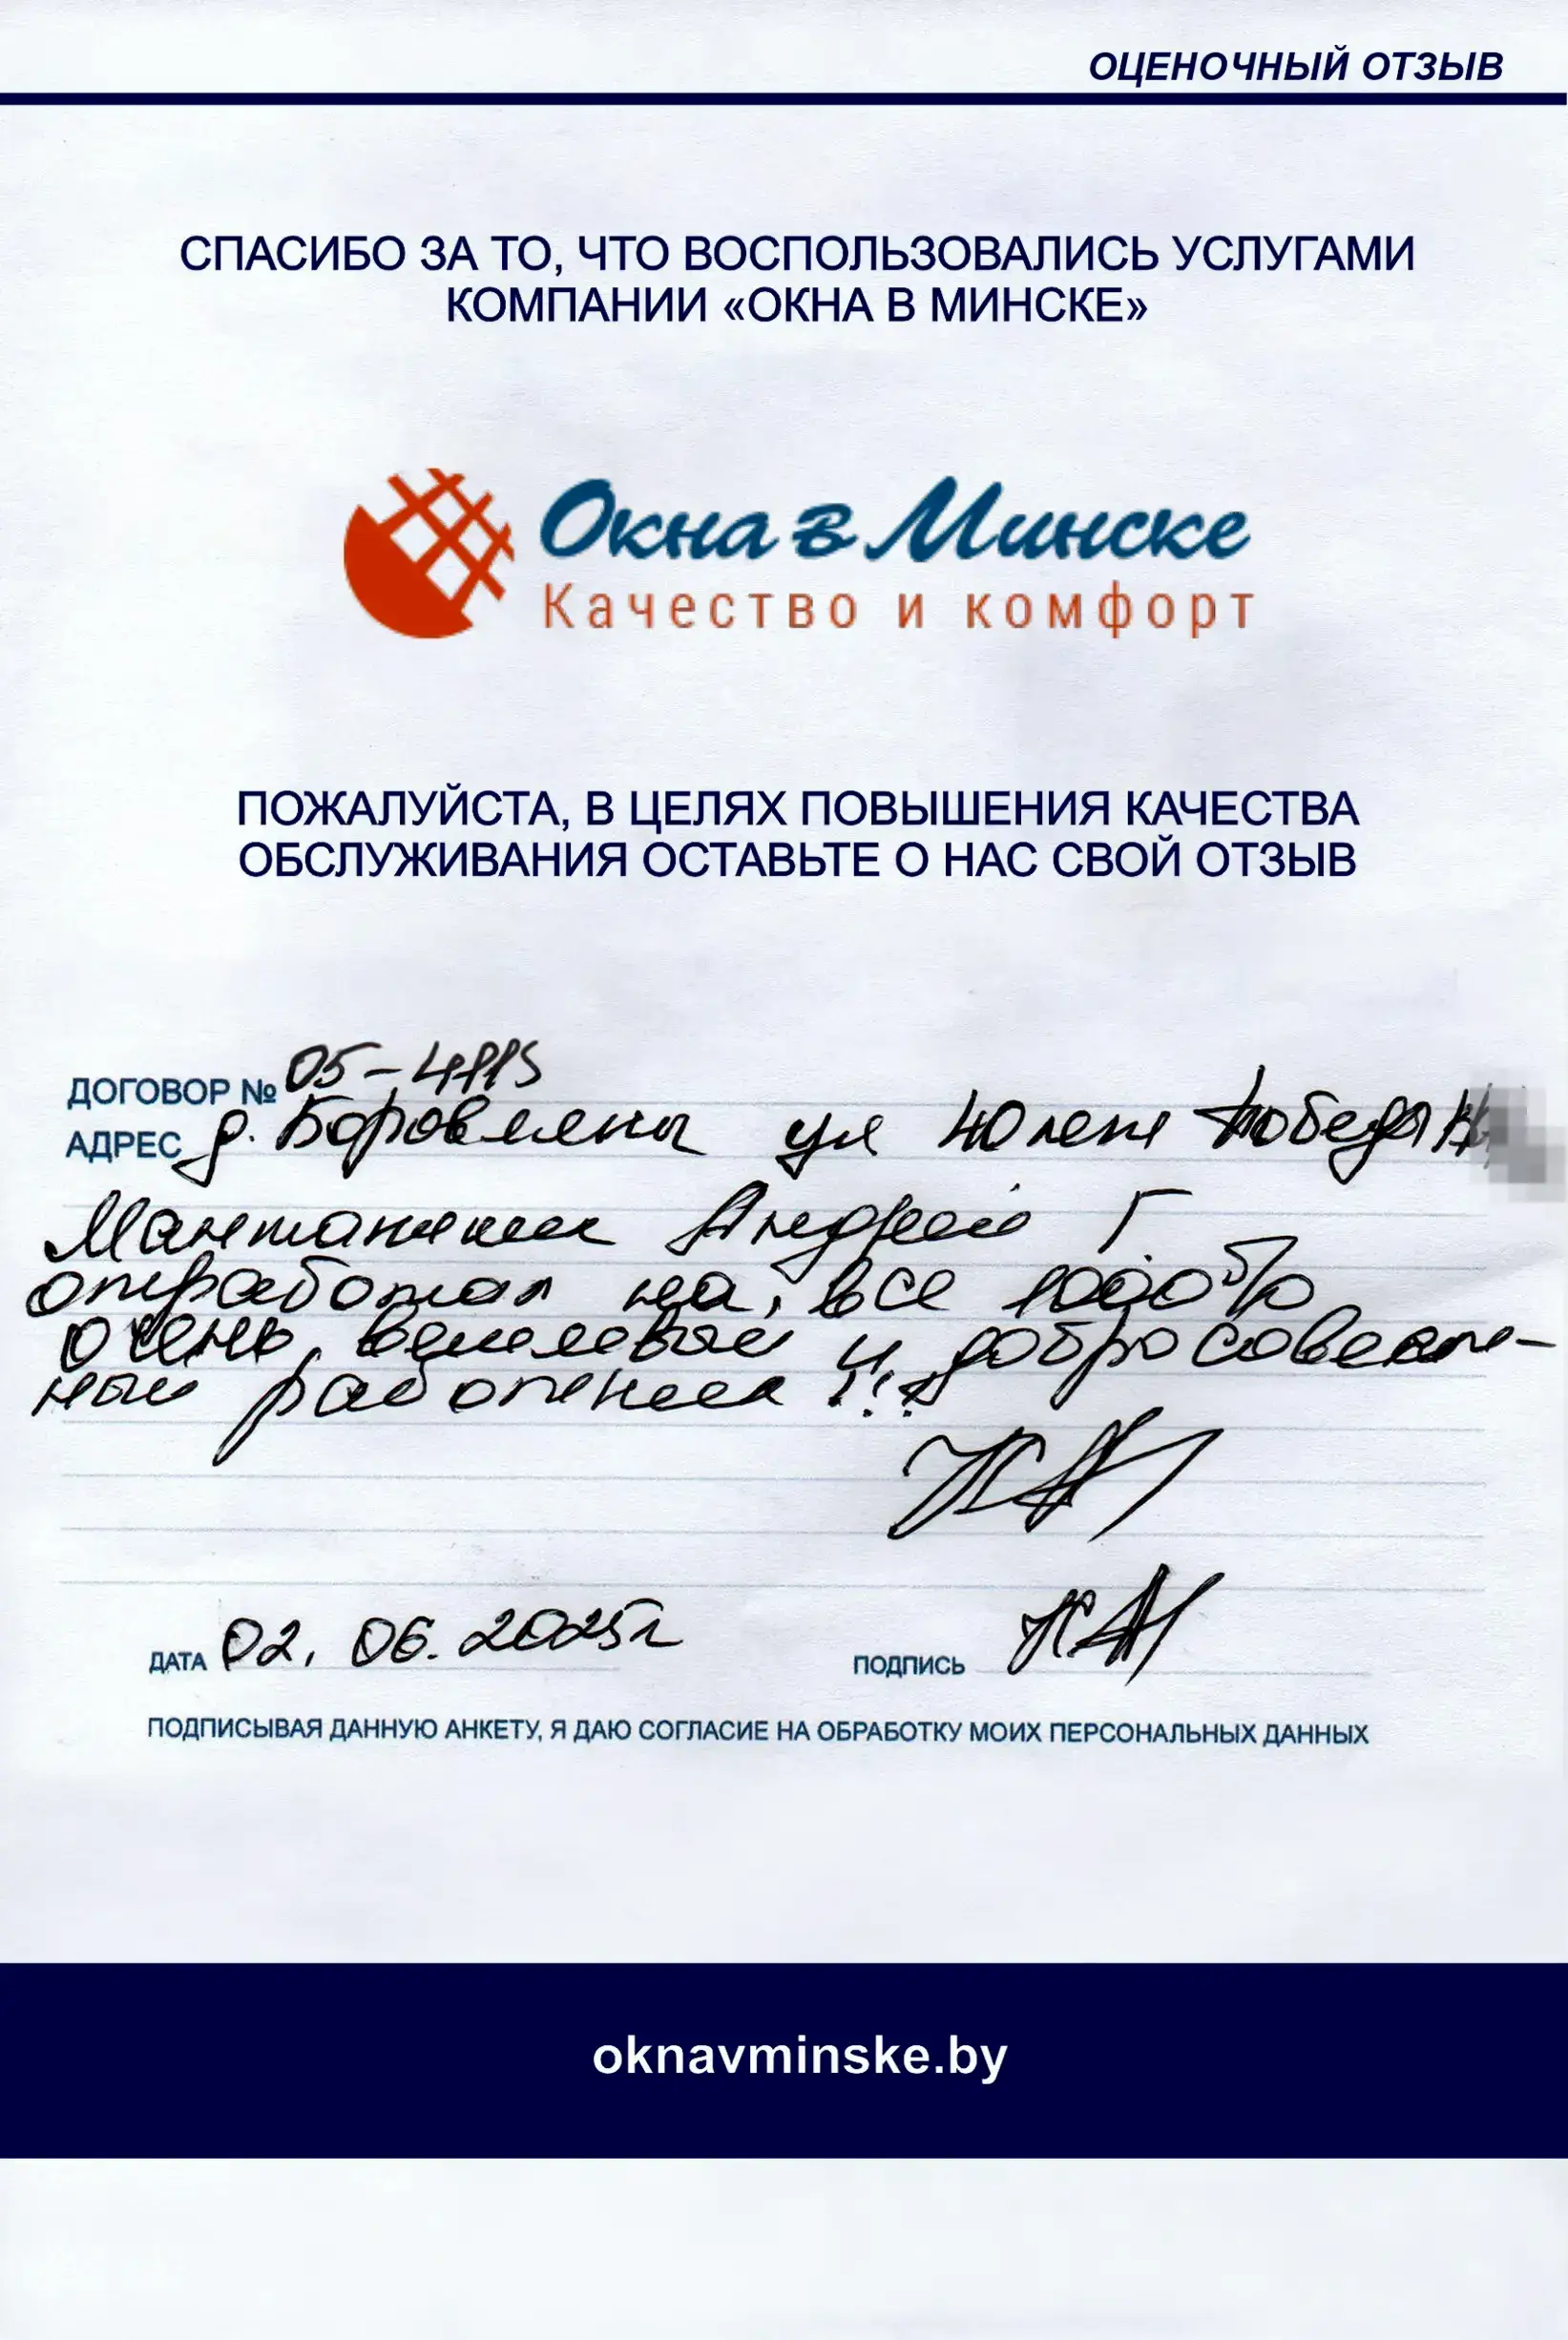 ОЦЕНОЧНЫЙ ОТЗЫВ
СПАСИБО ЗА ТО, ЧТО ВОСПОЛЬЗОВАЛИСЬ УСЛУГАМИ
КОМПАНИИ «ОКНА В МИНСКЕ»
Окна в Минске
Качество и комфорт
ПОЖАЛУЙСТА, В ЦЕЛЯХ ПОВЫШЕНИЯ КАЧЕСТВА
ОБСЛУЖИВАНИЯ ОСТАВЬТЕ О НАС СВОЙ ОТЗЫВ
ДОГОВОР №
АДРЕС д. Боровляны ул 40 лет Победы
Монтажник Андрей Г
отработал на все 1000%
очень вежливый и добросовест-
ный работник !!!
ДАТА 02.06.2025г
ПОДПИСЬ
ПОДПИСЫВАЯ ДАННУЮ АНКЕТУ, Я ДАЮ СОГЛАСИЕ НА ОБРАБОТКУ МОИХ ПЕРСОНАЛЬНЫХ ДАННЫХ
oknavminske.by